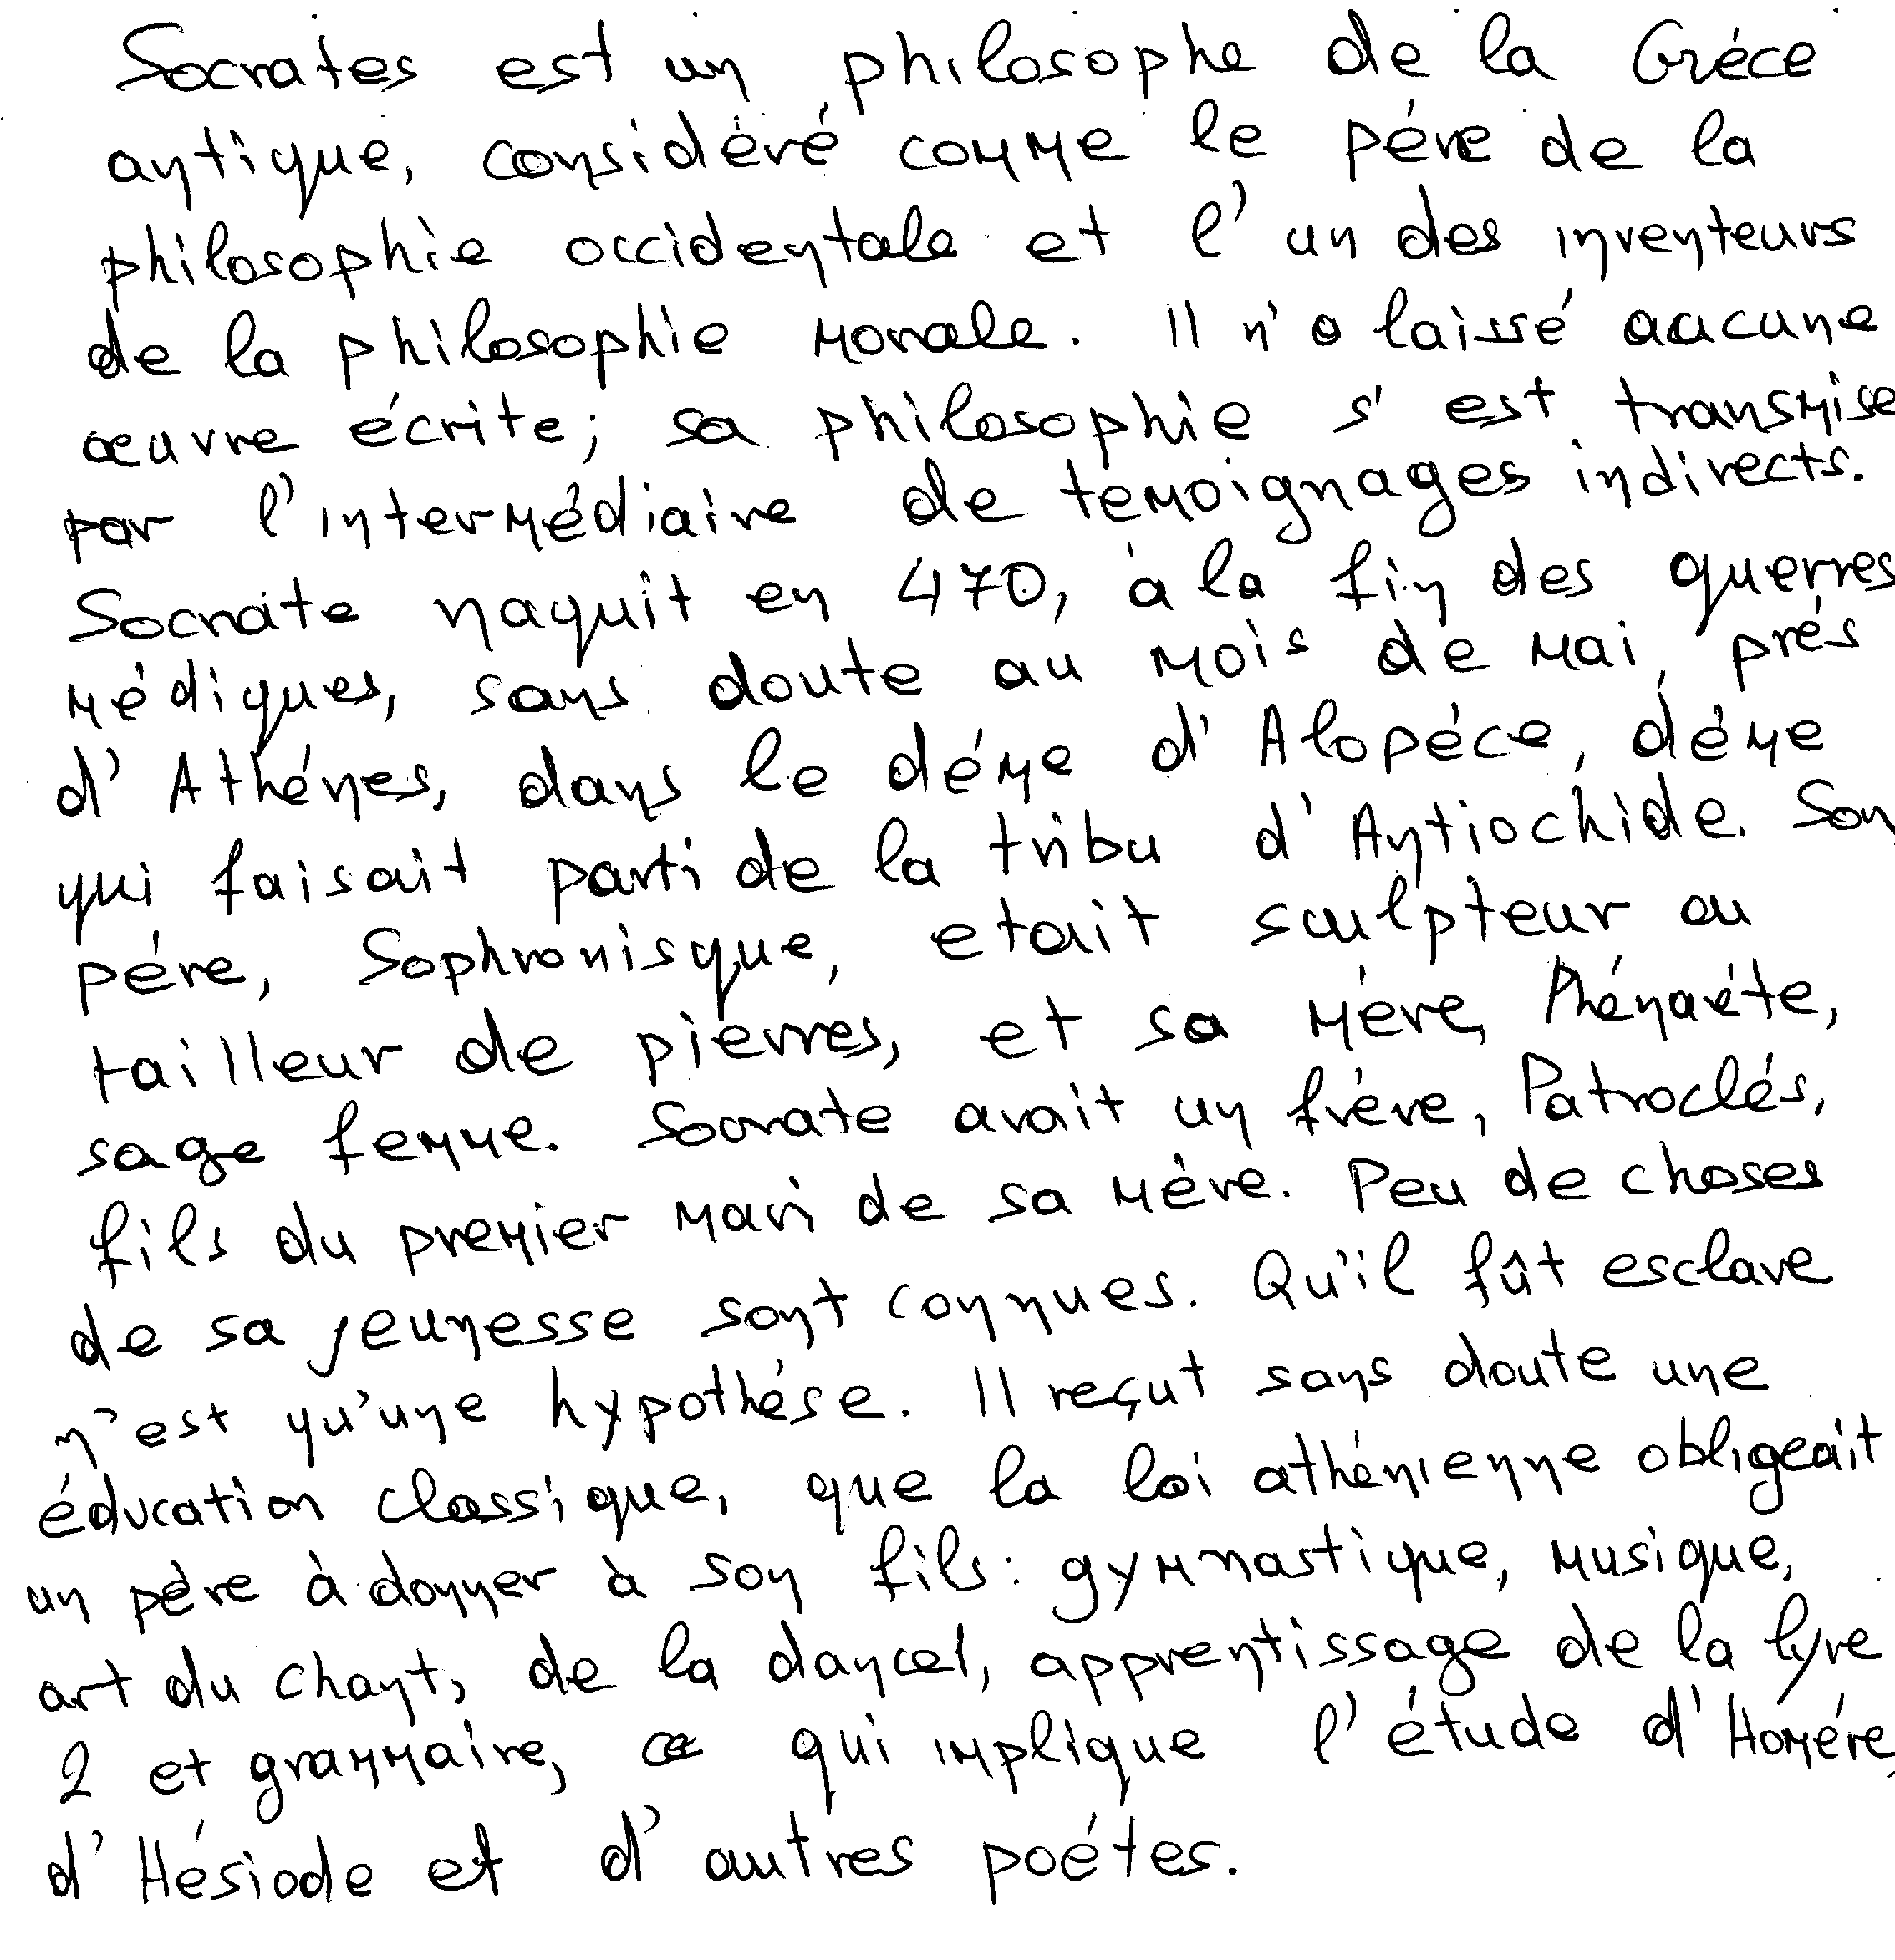 Socrates est un philosophe de la Gréce
antique, considéré comme le pére de la
philosophie occidentale et l'un des inventeurs
de la philosophie morale. Il n'a laissé aucune
œuvre écrite; sa philosophie s'est transmise
par l'intermédiaire de témoignages indirects.
Socrate naquit en 470, à la fin des guerres
médiques, sans doute au mois de mai, prés
d'Athénes, dans le déme d'Alopéce, déme
qui faisait parti de la tribu d'Antiochide. Son
pére, Sophronisque, etait sculpteur ou
tailleur de pierres, et sa mére, Phénaréte,
sage femme. Socrate avait un frére, Patroclés,
fils du premier mari de sa mére. Peu de choses
de sa jeunesse sont connues. Qu'il fût esclave
n'est qu'une hypothése. Il reçut sans doute une
éducation classique, que la loi athénienne obligeait
un pére à donner à son fils: gymnastique, musique,
art du chant, de la dance1, apprentissage de la lyre
2 et grammaire, ce qui implique l'étude d'Homére,
d'Hésiode et d'autres poétes.